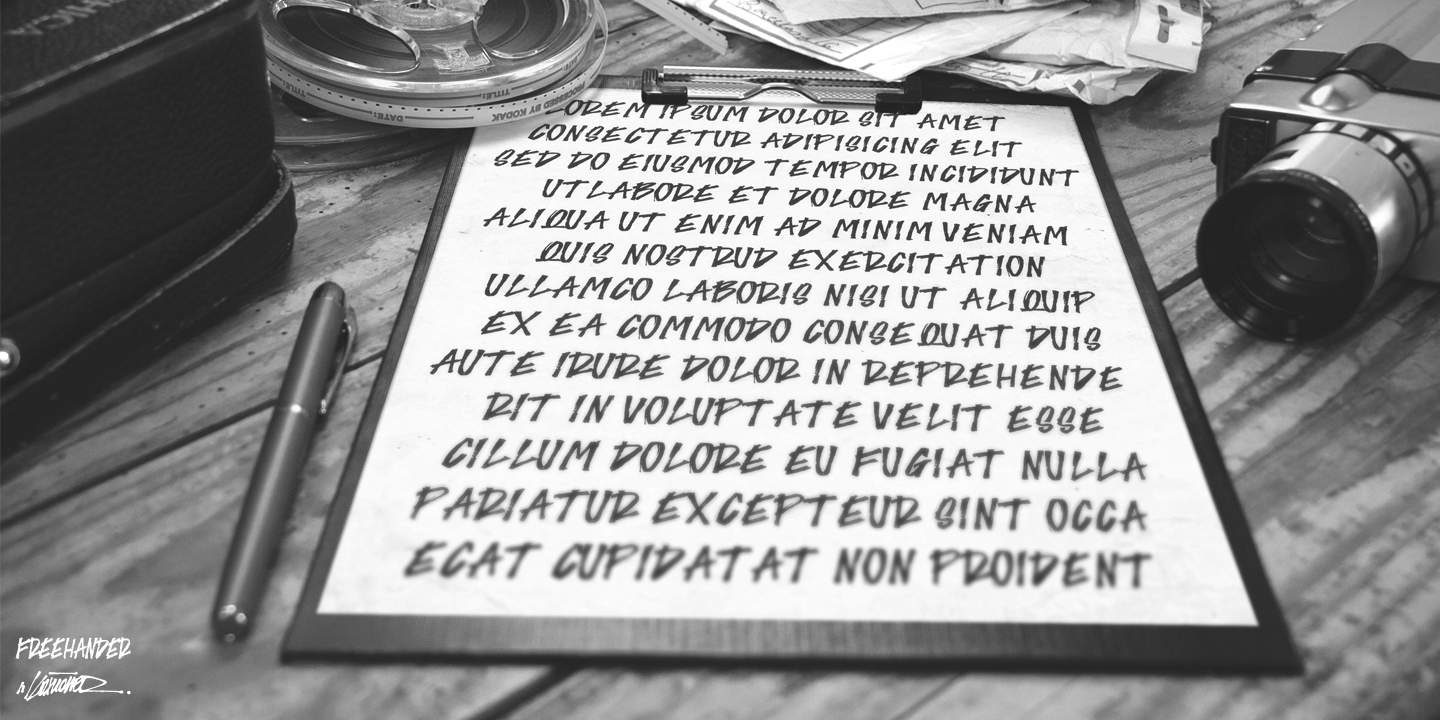 LOREM IPSUM DOLOR SIT AMET
CONSECTETUR ADIPISICING ELIT
SED DO EIUSMOD TEMPOR INCIDIDUNT
UT LABORE ET DOLORE MAGNA
ALIQUA UT ENIM AD MINIM VENIAM
QUIS NOSTRUD EXERCITATION
ULLAMCO LABORIS NISI UT ALIQUIP
EX EA COMMODO CONSEQUAT DUIS
AUTE IRURE DOLOR IN REPREHENDE
RIT IN VOLUPTATE VELIT ESSE
CILLUM DOLORE EU FUGIAT NULLA
PARIATUR EXCEPTEUR SINT OCCA
ECAT CUPIDATAT NON PROIDENT
TITLE:
DATE:
PROCESSED BY KODAK
TITLE:
FREEHANDER